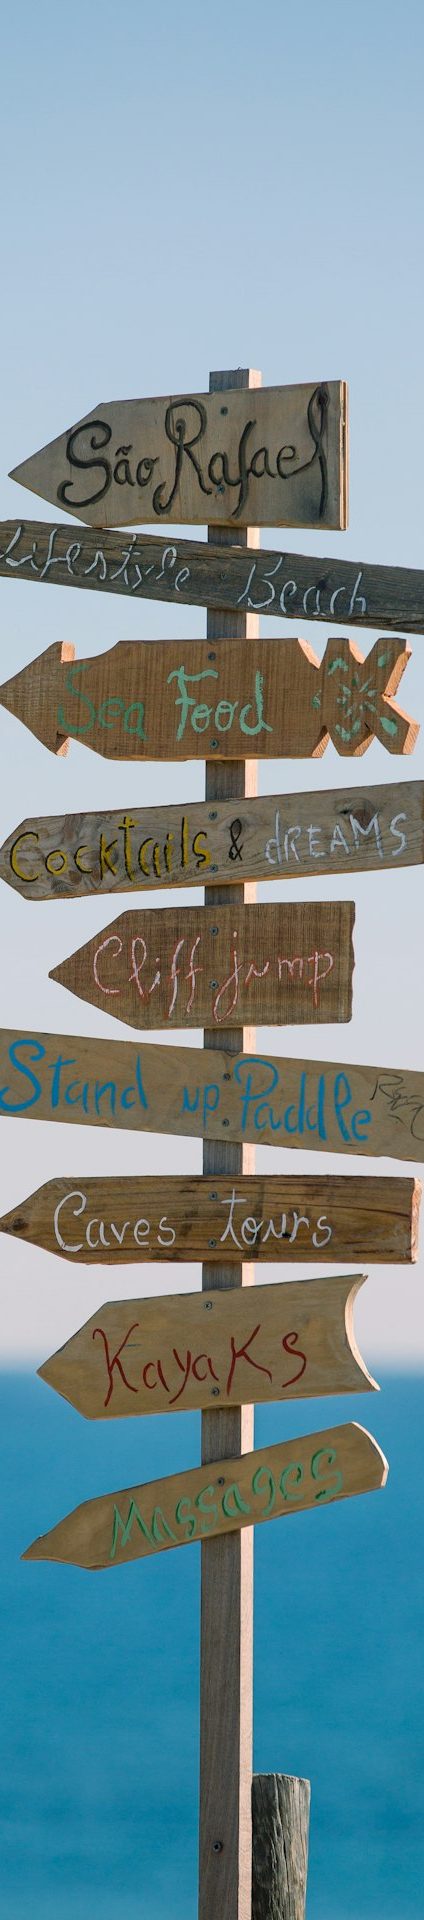 São Rafael
Lifestyle Beach
Sea Food
Cocktails & dREAMS
Cliff jump
Stand up Paddle
Caves tours
Kayaks
Massages